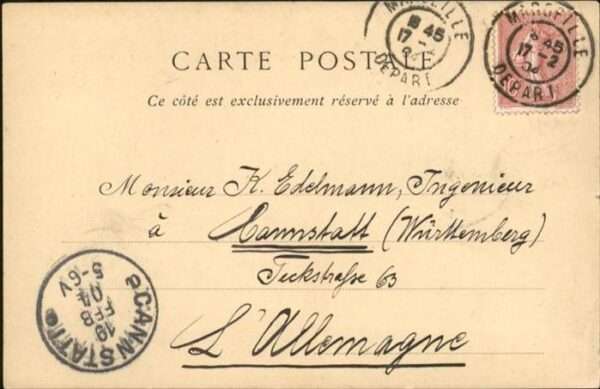 MARSEILLE
8 45
17-2
04
DEPART
MARSEILLE
8 45
17-2
04
DEPART
CARTE POSTALE
Ce côté est exclusivement réservé à l'adresse
Monsieur K. Edelmann, Ingenieur
à Cannstatt (Württemberg)
Teckstraße 63
L'Allemagne
CANNSTATT
19
FEB
04
5-6V